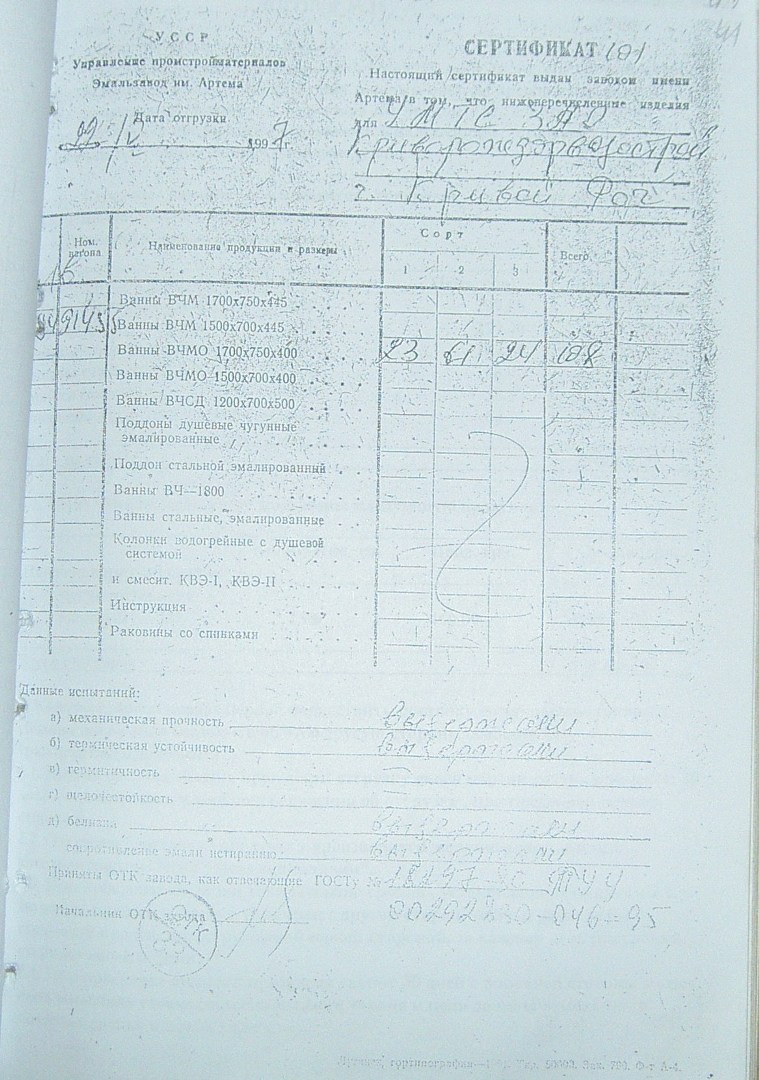 УССР
Управление промстройматериалов
Эмальзавод им. Артема
Дата отгрузки
29 12 1997 г.
СЕРТИФИКАТ 101
Настоящий сертификат выдан заводом имени
Артема в том, что нижеперечисленные изделия
для УМТС ЗАО
г. Кривой Рог
Ном. вагона
Наименование продукции и размеры
Сорт
1 2 3
Всего
Ванны ВЧМ 1700х750х445
Ванны ВЧМ 1500х700х445
Ванны ВЧМО 1700х750х400 23 61 24 108
Ванны ВЧМО 1500х700х400
Ванны ВЧСД 1200х700х500
Поддоны душевые чугунные
эмалированные
Поддон стальной эмалированный
Ванны ВЧ—1800
Ванны стальные, эмалированные
Колонки водогрейные с душевой
системой
и смесит. КВЭ-I, КВЭ-II
Инструкция
Раковины со спинками
Данные испытаний:
а) механическая прочность выдержали
б) термическая устойчивость выдержали
в) гермитичность —
г) щелочестойкость —
д) белизна выдержали
сопротивление эмали истиранию выдержали
Приняты ОТК завода, как отвечающие ГОСТу № 18297-
Начальник ОТК завода
ОТК